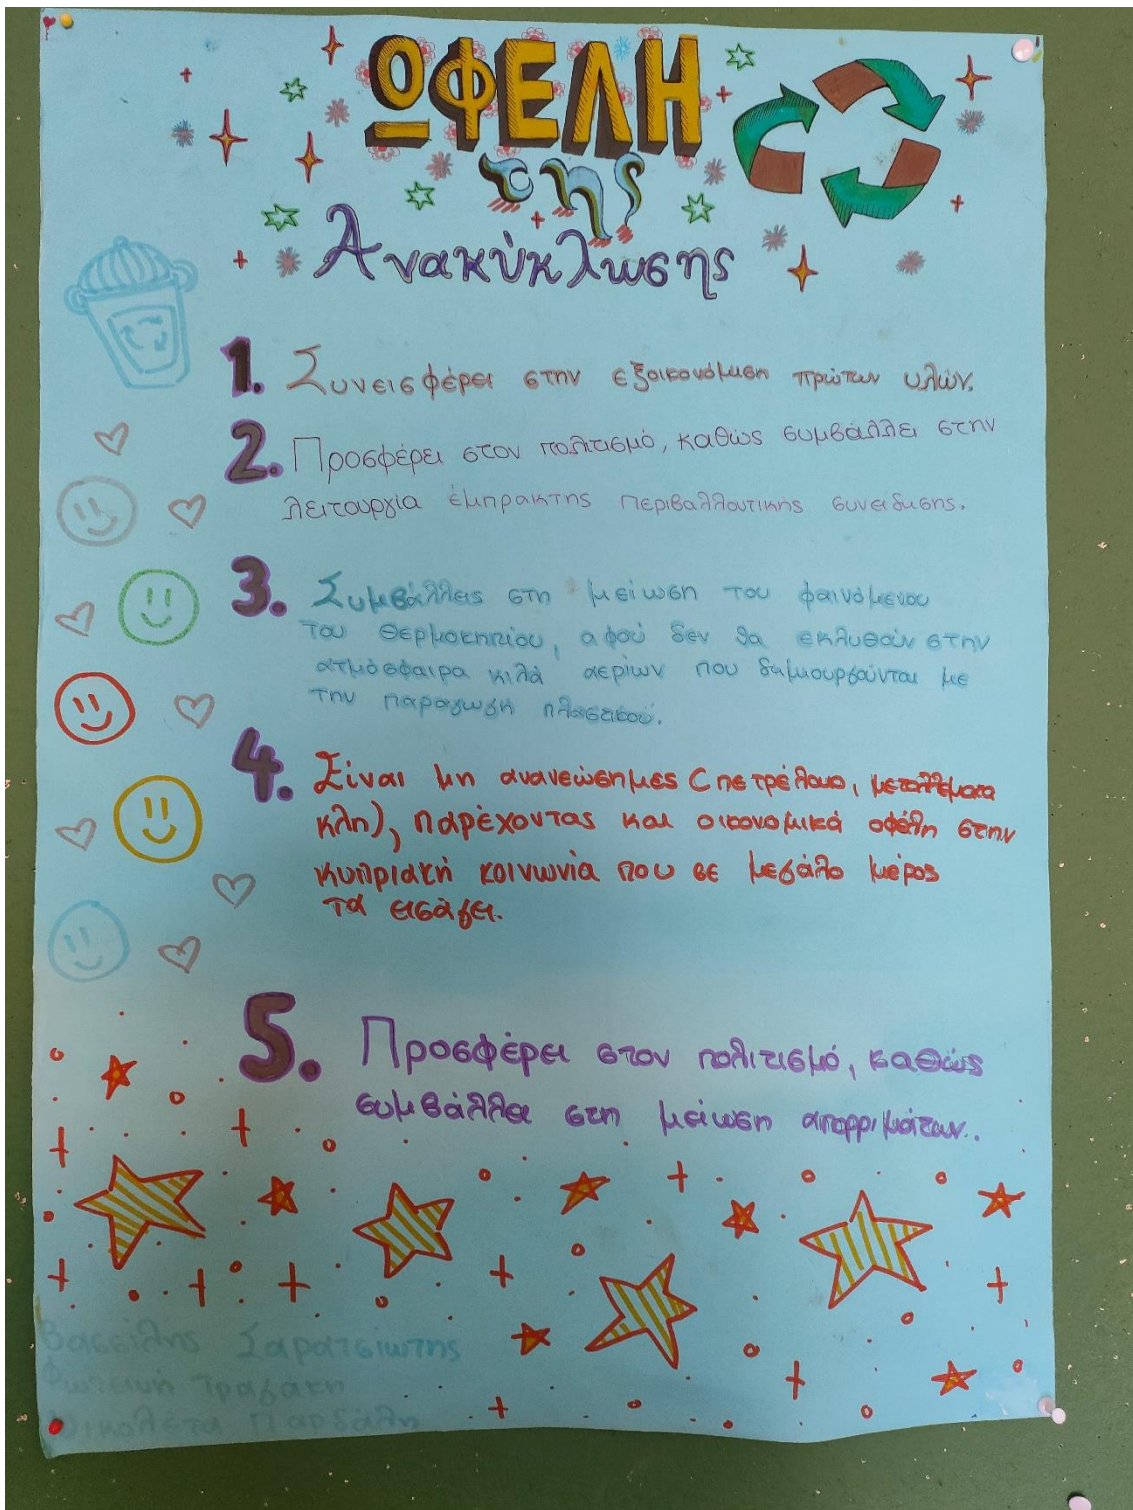 ΟΦΕΛΗ
της
Ανακύκλωσης
1. Συνεισφέρει στην εξοικονόμιση πρώτων υλών.
2. Προσφέρει στον πολιτισμό, καθώς συμβάλλει στην
λειτουργία έμπρακτης περιβαλλοντικής συνείδησης.
3. Συμβάλλεις στη μείωση του φαινόμενου
του θερμοκηπίου, αφού δεν θα εκλυθούν στην
ατμόσφαιρα κιλά αερίων που δημιουργούνται με
την παραγωγή πλαστικού.
4. Είναι μη ανανεώσημες (πετρέλαιο, μεταλλέματα
κλπ), παρέχοντας και οικονομικά οφέλη στην
κυπριακή κοινωνία που σε μεγάλο μέρος
τα εισάγει.
5. Προσφέρει στον πολιτισμό, καθώς
συμβάλλει στη μείωση απορριμάτων..
Βασσίλης Σαρατσιώτης
Φωτεινή Τραγάκη
Νικολέτα Παρδάλη